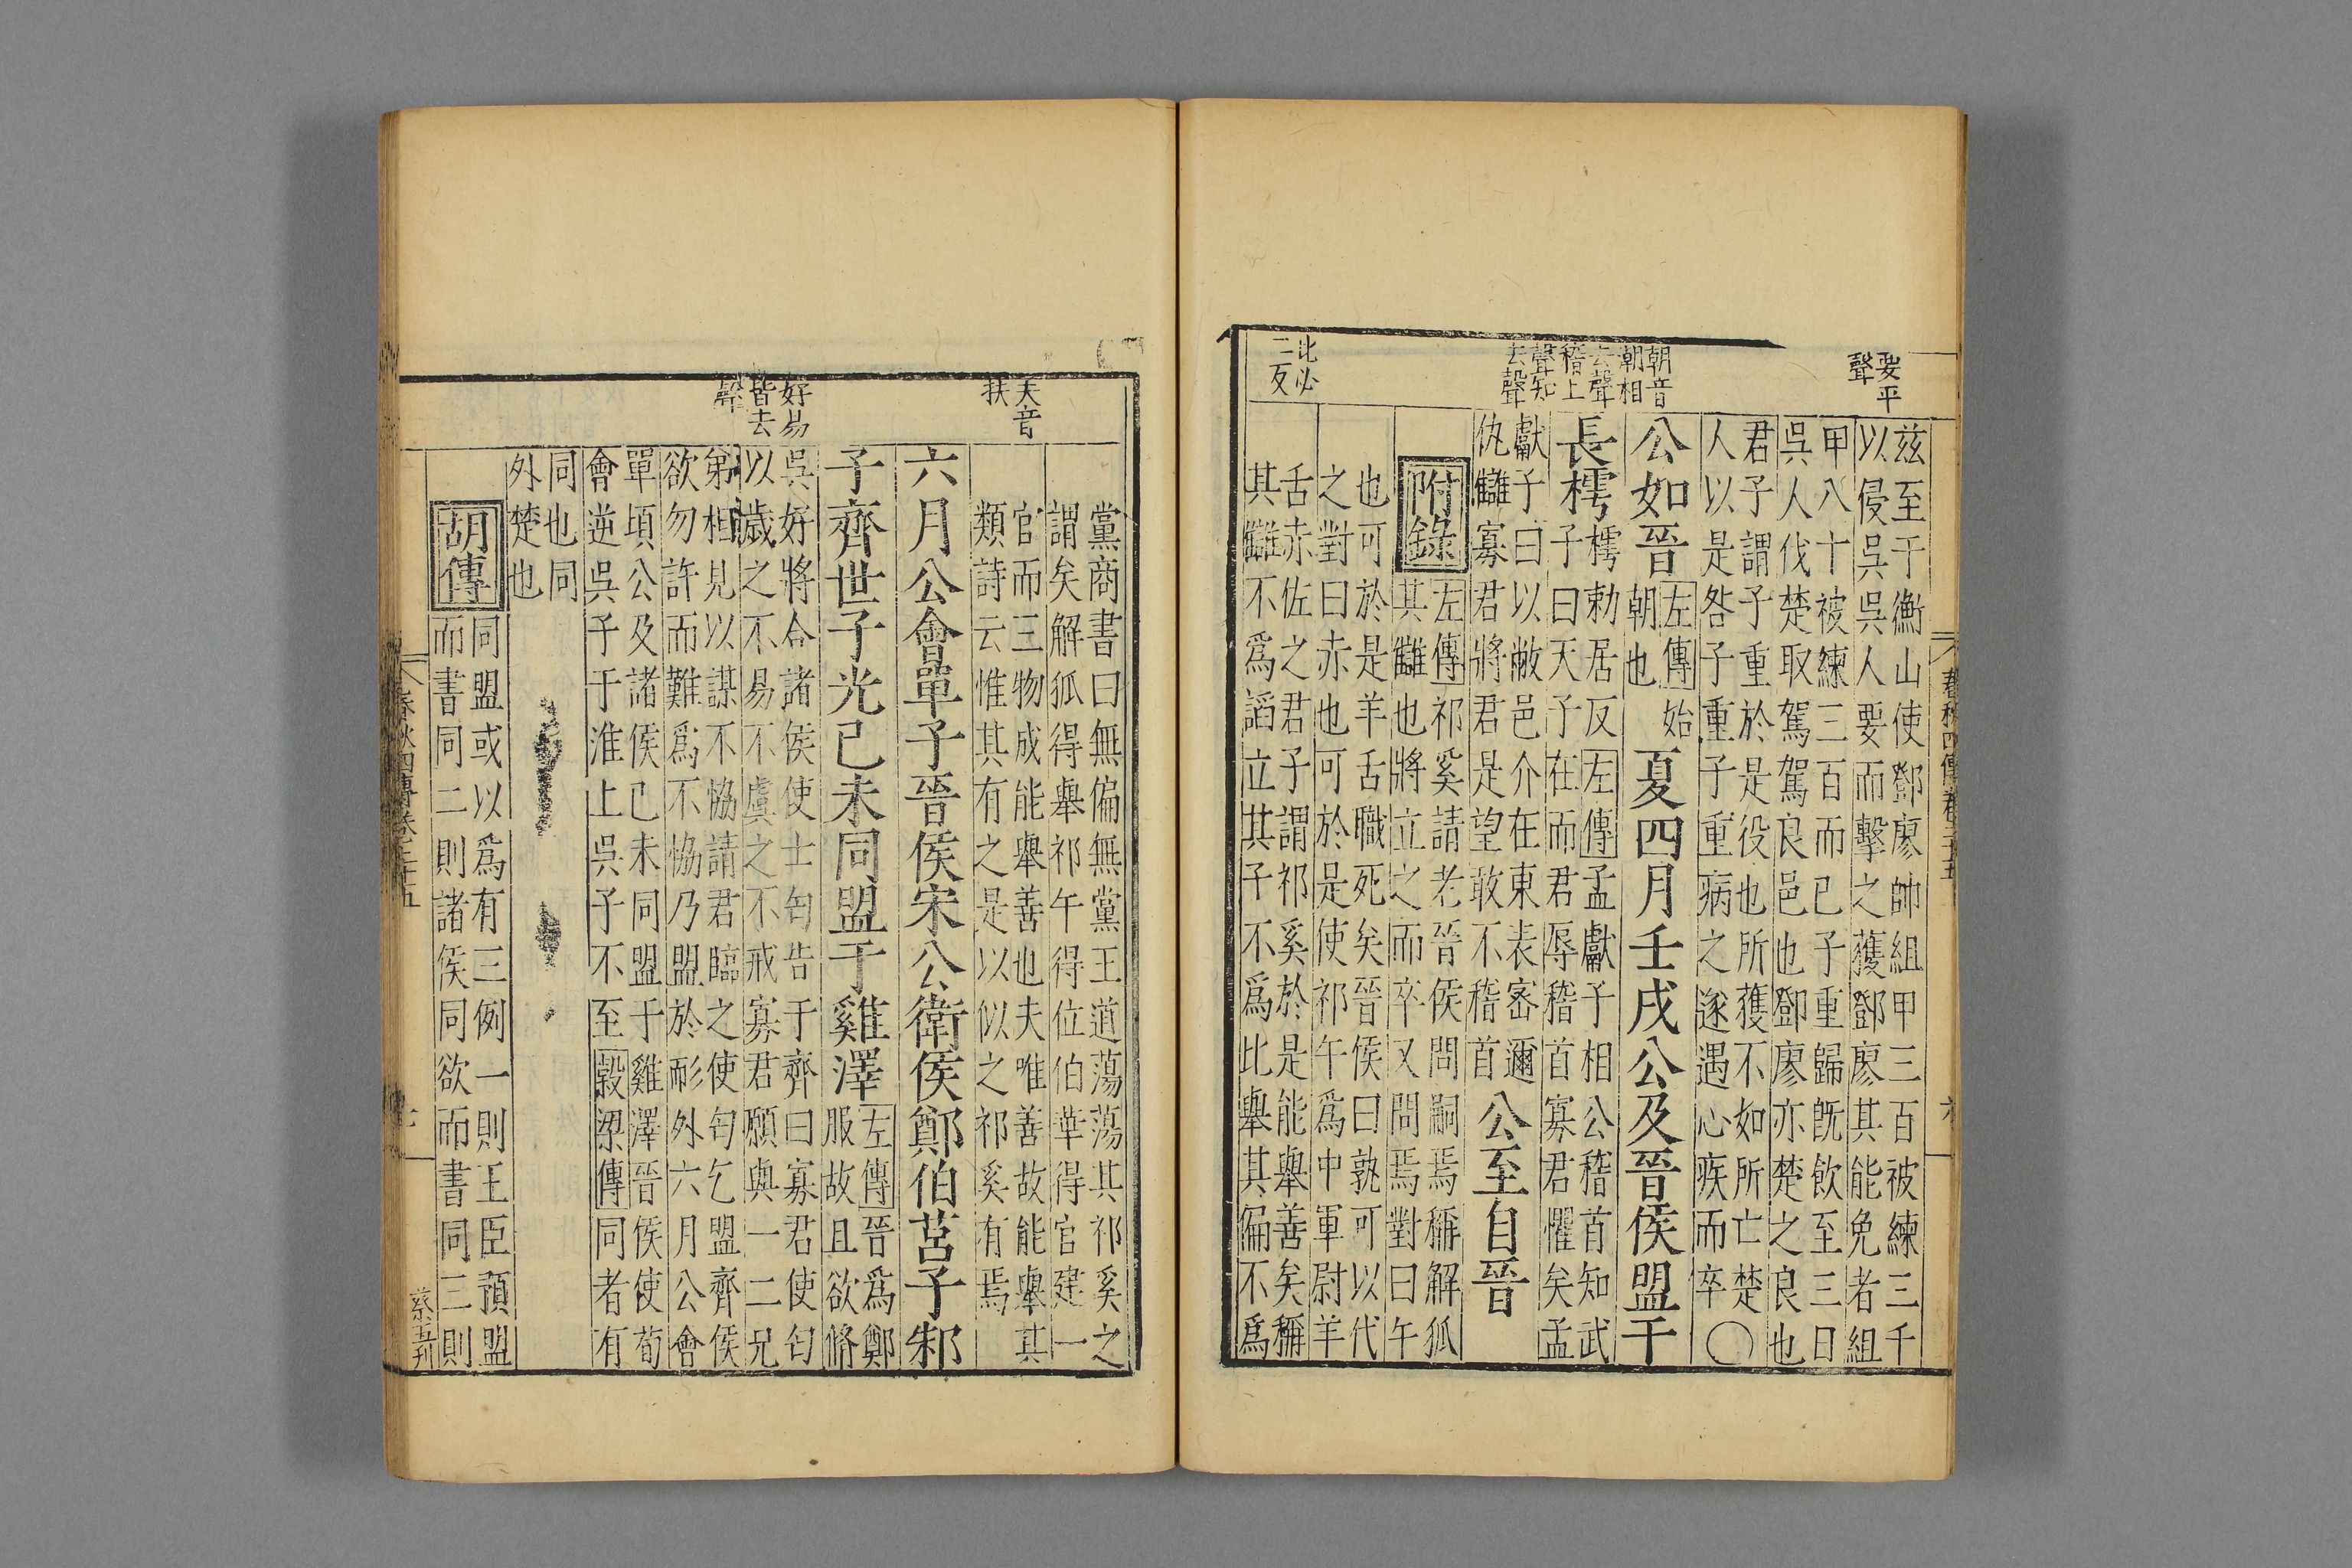 要平
聲
朝音
朝相
去聲
稽上
聲知
去聲
比必
二反
茲至于衡山使鄧廖帥組甲三百被練三千
以侵吳吳人要而擊之獲鄧廖其能免者組
甲八十被練三百而已子重歸既飲至三日
吳人伐楚取駕駕良邑也鄧廖亦楚之良也
君子謂子重於是役也所獲不如所亡楚
人以是咎子重子重病之遂遇心疾而卒○
公如晉
左傳始
朝也
夏四月壬戌公及晉侯盟于
長樗
樗勑居反左傳孟獻子相公稽首知武
子曰天子在而君辱稽首寡君懼矣孟
獻子曰以敝邑介在東表密邇
仇讎寡君將君是望敢不稽首
公至自晉
附錄
左傳祁奚請老晉侯問嗣焉稱解狐
其讎也將立之而卒又問焉對曰午
也可於是羊舌職死矣晉侯曰孰可以代
之對曰赤也可於是使祁午爲中軍尉羊
舌赤佐之君子謂祁奚於是能舉善矣稱
其讎不爲謟立其子不爲比舉其偏不爲
春秋四傳卷二十五
夫音
扶
好易
皆去
聲
黨商書曰無偏無黨王道蕩蕩其祁奚之
謂矣解狐得舉祁午得位伯華得官建一
官而三物成能舉善也夫唯善故能舉其
類詩云惟其有之是以似之祁奚有焉
六月公會單子晉侯宋公衛侯鄭伯莒子邾
子齊世子光己未同盟于雞澤
左傳晉爲鄭
服故且欲脩
吳好將合諸侯使士匄告于齊曰寡君使匄
以歲之不易不虞之不戒寡君願與一二兄
弟相見以謀不恊請君臨之使匄乞盟齊侯
欲勿許而難爲不恊乃盟於耏外六月公會
單頃公及諸侯己未同盟于雞澤晉侯使荀
會逆吳子于淮上吳子不至穀梁傳同者有
同也同
外楚也
胡傳
同盟或以爲有三例一則王臣預盟
而書同二則諸侯同欲而書同三則
春秋四傳卷二十五